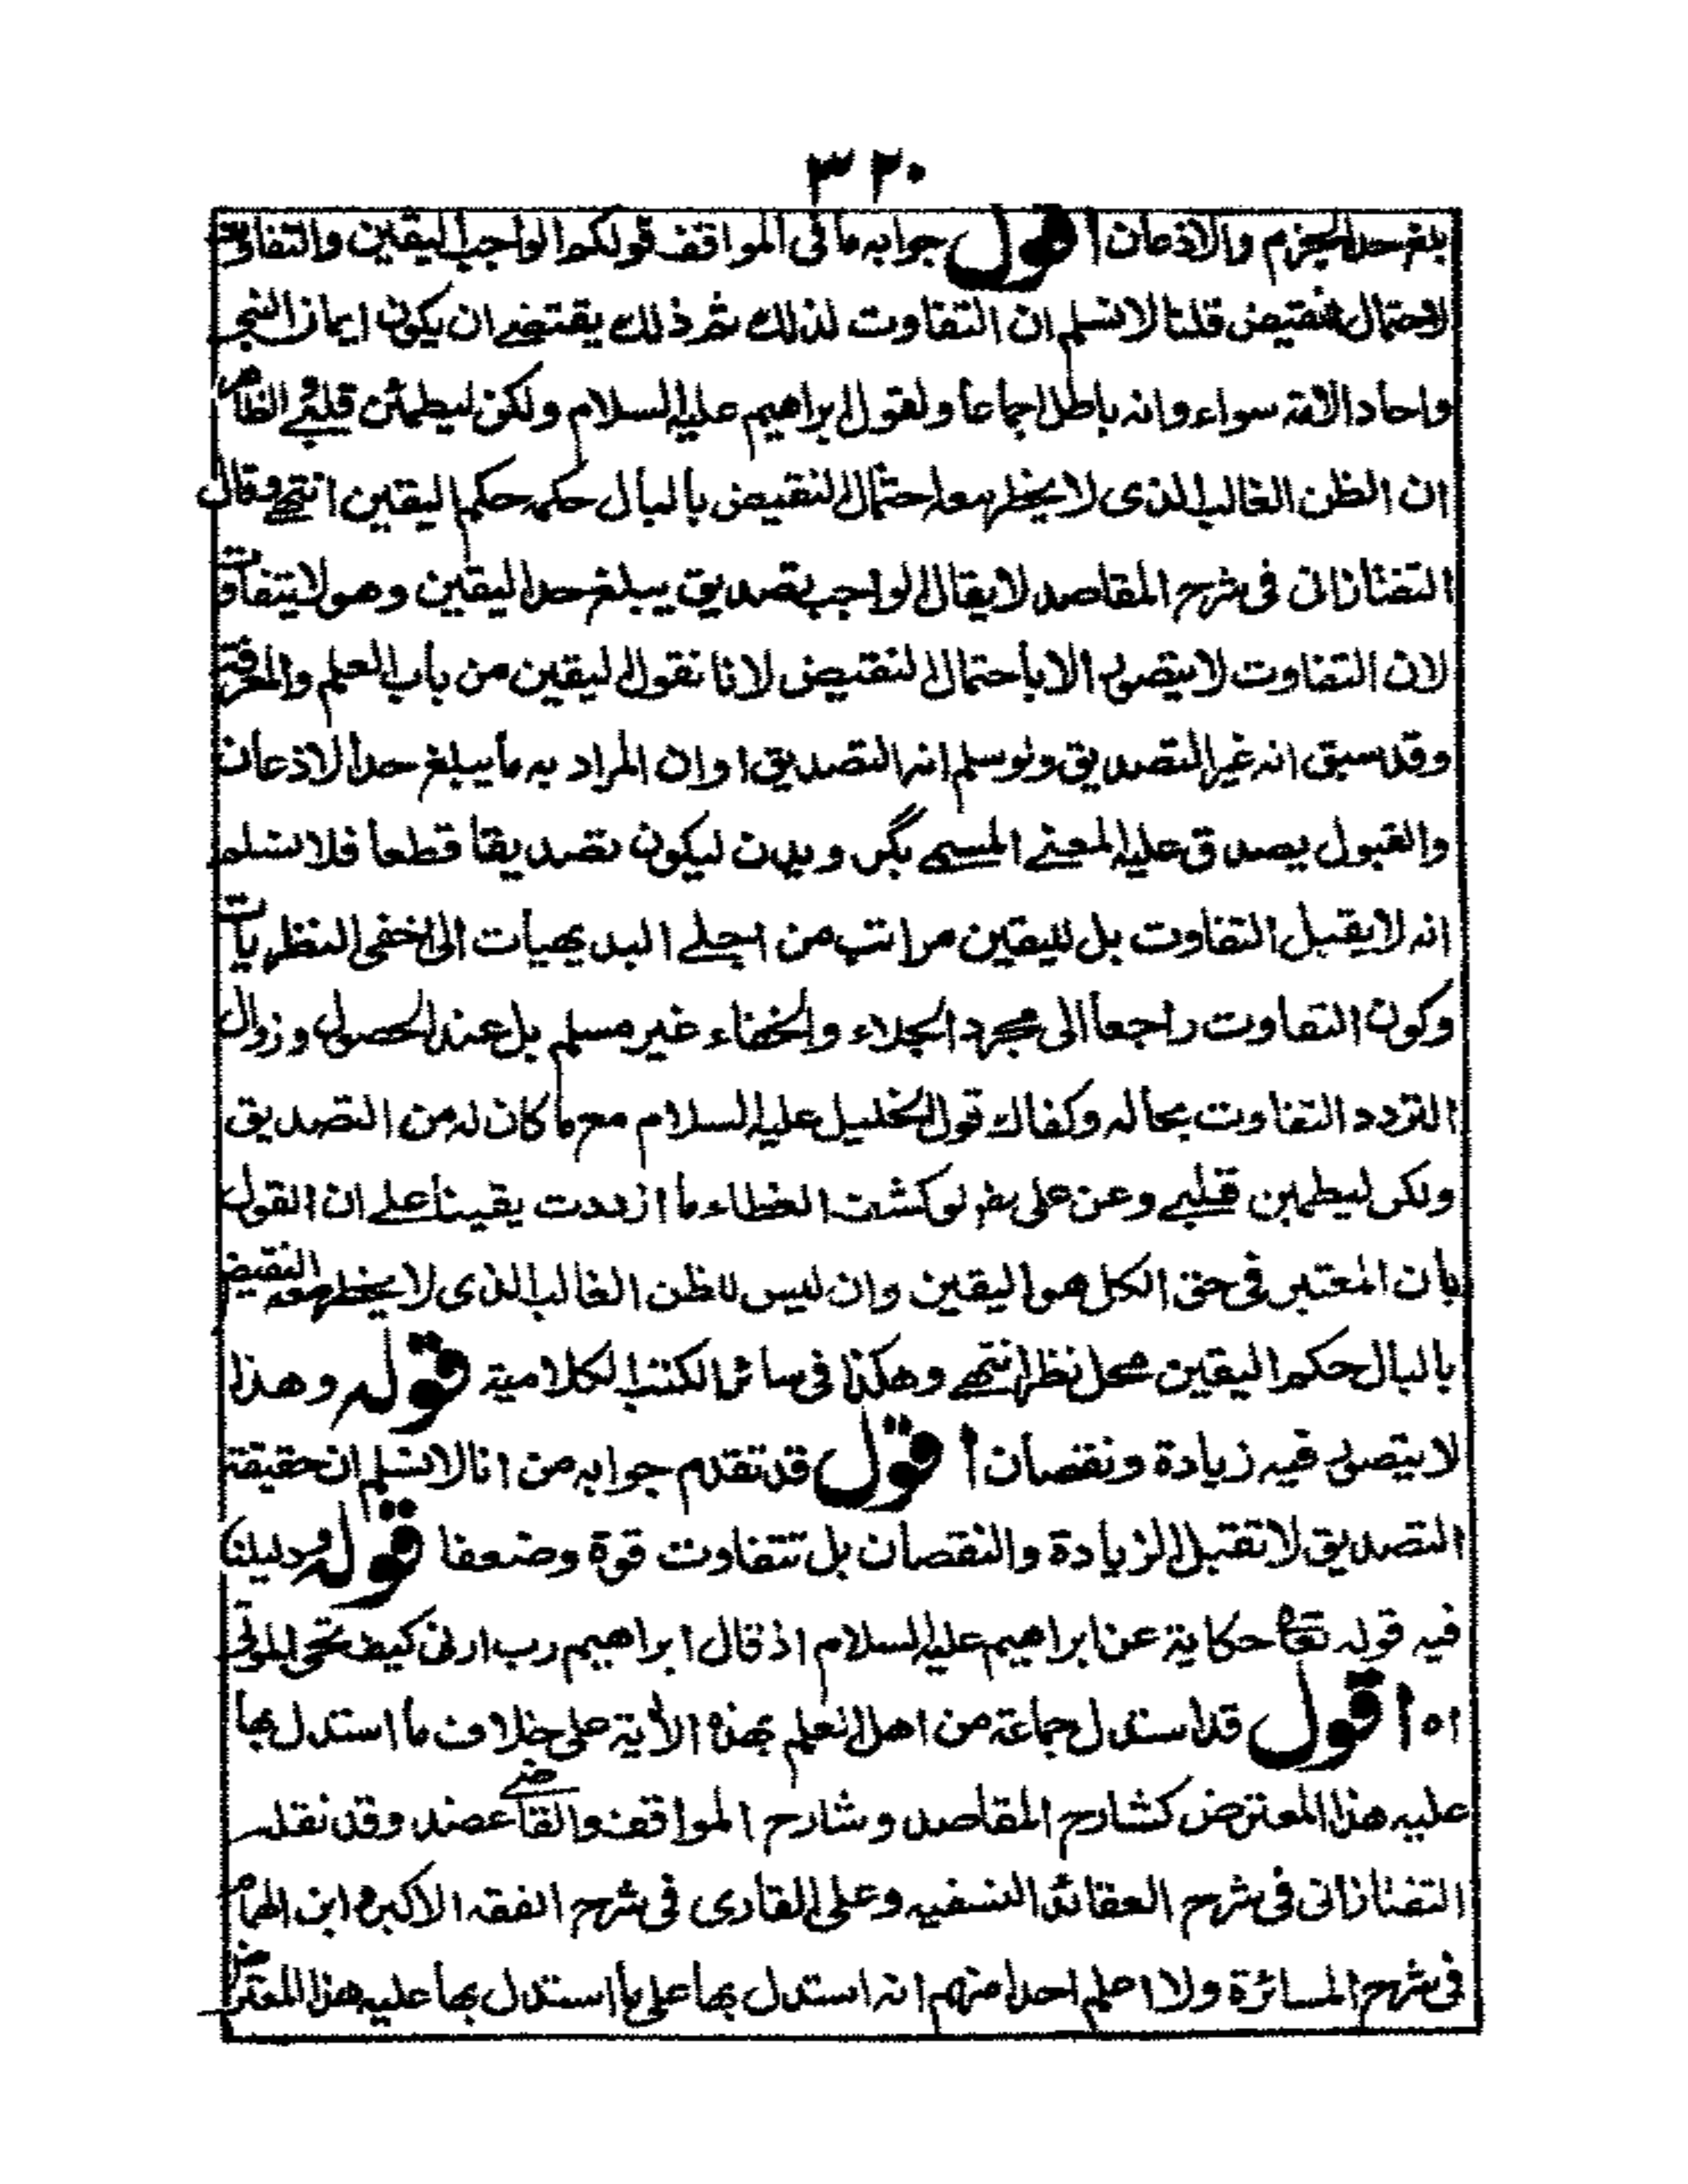 ٣٢٠
بلغ حد الجزم والاذعان اقول جوابه ما فى المواقف قولكم الواجب اليقين والتفاوت
لاحتمال النقيض قلنا لا نسلم ان التفاوت لذلك ثم ذلك يقتضى ان يكون ايمان النبى
واحاد الامة سواء وانه باطل اجماعا ولقول ابراهيم عليه السلام ولكن ليطمئن قلبى والظاهر
ان الظن الغالب الذى لا يخطر معه احتمال النقيض بالبال حكمه حكم اليقين انتهى وقال
التفتازانى فى شرح المقاصد لا يقال الواجب تصديق يبلغ حد اليقين وهو لا يتفاوت
لان التفاوت لا يتصور الا باحتمال النقيض لانا نقول اليقين من باب العلم والمعرفة
وقد سبق انه غير التصديق ولو سلم انه التصديق او ان المراد به ما يبلغ حد الاذعان
والقبول يصدق عليه المعنى المسمى بگرويدن ليكون تصديقا قطعا فلا نسلم
انه لا يقبل التفاوت بل لليقين مراتب من اجلى البديهيات الى اخفى النظريات
وكون التفاوت راجعا الى مجرد الجلاء والخفاء غير مسلم بل عند الحصول وزوال
التردد التفاوت بحاله وكفاك قول الخليل عليه السلام مع ما كان له من التصديق
ولكن ليطمئن قلبى وعن على رضـ لو كشف الغطاء ما ازددت يقينا على ان القول
بان المعتبر فى حق الكل هو اليقين وان ليس للظن الغالب الذى لا يخطر معه النقيض
بالبال حكم اليقين محل نظر انتهى وهكذا فى سائر الكتب الكلامية قوله وهذا
لا يتصور فيه زيادة ونقصان اقول قد تقدم جوابه من انا لا نسلم ان حقيقة
التصديق لا تقبل الزيادة والنقصان بل تتفاوت قوة وضعفا قوله ودليلنا
فيه قوله تعا حكاية عن ابراهيم عليه السلام اذ قال ابراهيم رب ارنى كيف تحى الموتى
اه اقول قد استدل جماعة من اهل العلم بهذه الأية على خلاف ما استدل بها
عليه هذا المعترض كشارح المقاصد وشارح المواقف والقاضى عضد وقد نقله
التفتازانى فى شرح العقائد النسفيه وعلى القارى فى شرح الفقه الاكبر وابن الهمام
فى شرح المسائرة ولا اعلم احدا منهم انه استدل بها على ما استدل بها عليه هذا المعترض